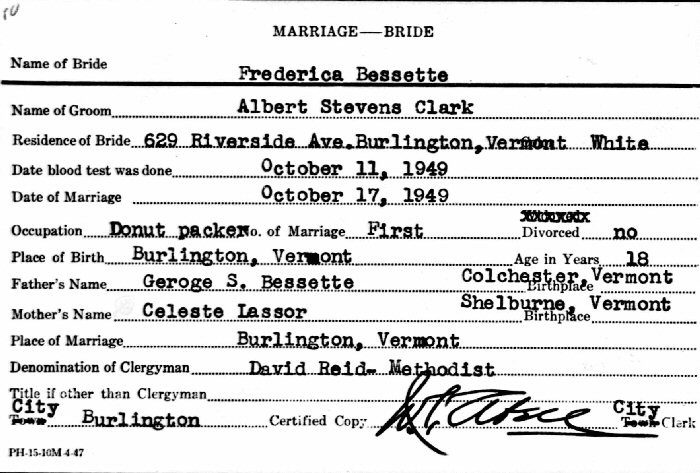 MARRIAGE—BRIDE
Name of Bride Frederica Bessette
Name of Groom Albert Stevens Clark
Residence of Bride 629 Riverside Ave. Burlington, Vermont White
Date blood test was done October 11, 1949
Date of Marriage October 17, 1949
Occupation Donut packer No. of Marriage First Divorced no
Place of Birth Burlington, Vermont Age in Years 18
Father's Name Geroge S. Bessette Colchester, Vermont Birthplace
Mother's Name Celeste Lassor Shelburne, Vermont Birthplace
Place of Marriage Burlington, Vermont
Denomination of Clergyman David Reid- Methodist
Title if other than Clergyman
City Town Burlington Certified Copy City Town Clerk
PH-15-10M 4-47